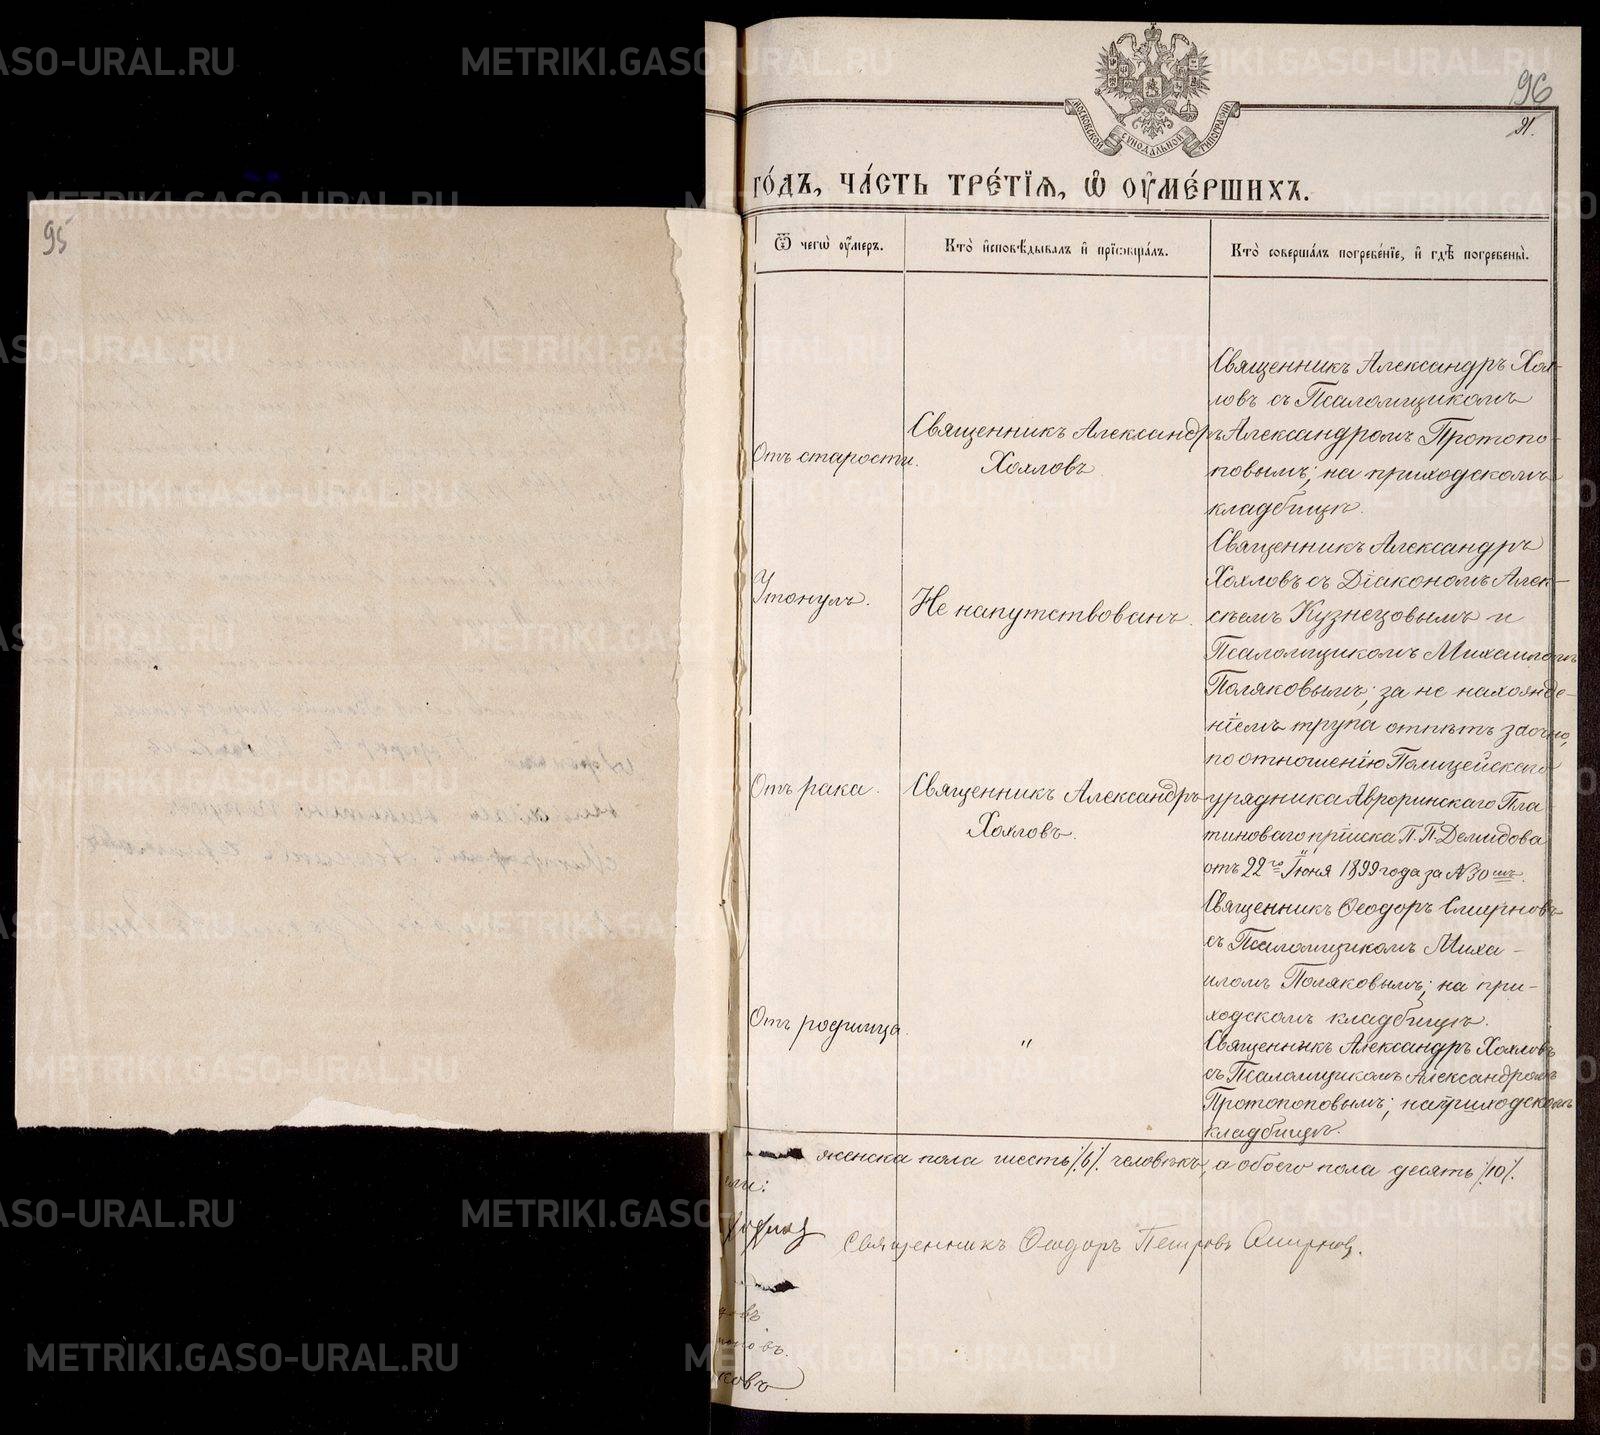 96
91.
95
МОСКОВСКОЙ СѴНОДАЛЬНОЙ ТИПОГРАФІИ
го́дъ, ча́сть тре́тїѧ, ѡ҆ ᲂу҆ме́ршихъ.
Ѿ чегѡ̀ ᲂу҆́меръ.
Кто̀ и҆сповѣ́дывалъ и҆ прїѡбща́лъ.
Кто̀ соверша́лъ погребе́нїе, и҆ гдѣ̀ погребены̀.
Отъ старости.
Священникъ Александръ
Хохловъ
Священникъ Александръ Хох-
ловъ съ Псаломщикомъ
Александромъ Протопо-
повымъ; на приходскомъ
кладбищѣ.
Утонулъ.
Не напутствованъ.
Священникъ Александръ
Хохловъ съ Діакономъ Алек-
сѣемъ Кузнецовымъ и
Псаломщикомъ Михаиломъ
Поляковымъ; за не нахожде-
ніемъ трупа отпѣтъ заочно,
по отношенію Полицейскаго
урядника Авроринскаго Пла-
тиноваго пріиска П. П. Демидова
отъ 22го Іюня 1899 года за № 30мъ.
Отъ рака.
Священникъ Александръ
Хохловъ.
Священникъ Ѳеодоръ Смирновъ
съ Псаломщикомъ Миха-
иломъ Поляковымъ; на при-
ходскомъ кладбищѣ.
Отъ родимца
"
Священникъ Александръ Хохловъ
съ Псаломщикомъ Александромъ
Протопоповымъ; на приходскомъ
кладбищѣ.
женска пола шесть /.6/. человѣкъ, а обоего пола десять /.10/.
ли:
Священникъ Ѳеодоръ Петровъ Смирновъ.
довъ
повъ.
ковъ
METRIKI.GASO-URAL.RU